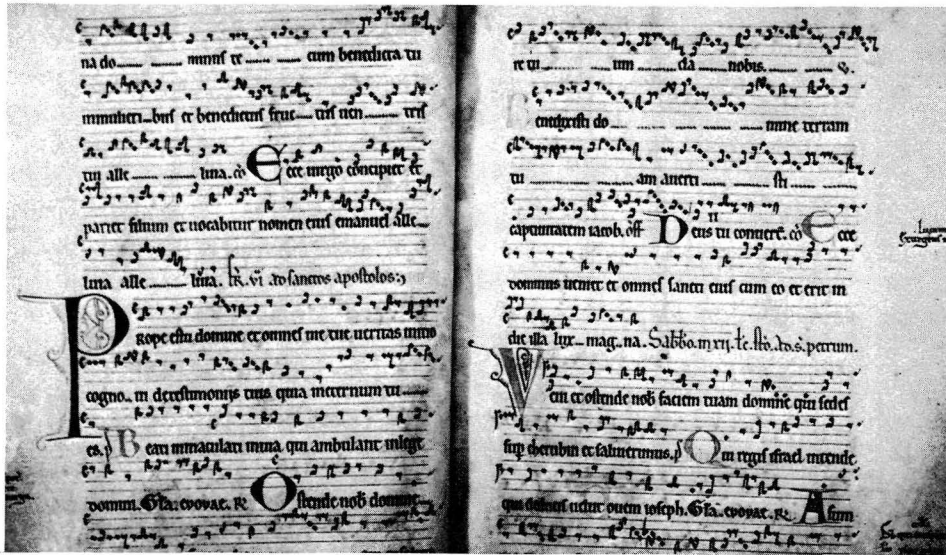 na do mınus te cum benedicta tu
ınmulieri bus et benedictus fruc tus uen tris
tui alle luia. cō Ecce uirgo concipiet et
pariet filium et uocabitur nomen eius emanuel alle
luia alle luia. fr. vi. ad sanctos apostolos:
Prope esto domine et omnes uie tue ueritas initio
cogno ui de testimonijs tuis quia ineternum tu
es. p Beati immaculati inuia qui ambulant inlege
domini. Gła. evovae. R Ostende nob domine
re tu um da nobis.
Benedixisti do mine terram
tu am auerti sti
captiuitatem iacob. off Deus tu conuert. cō Ecce
dominus ueniet et omnes sancti eius cum eo et erit in
die illa lux mag na. Sabbō. in xii. łc. stō. ad s. petrum.
Veni et ostende nob faciem tuam domine qui sedes
sup cherubin et saluierimus. p Qui regis israel intende
qui deducis uelut ouem ioseph. Gła. evovae. R A sum